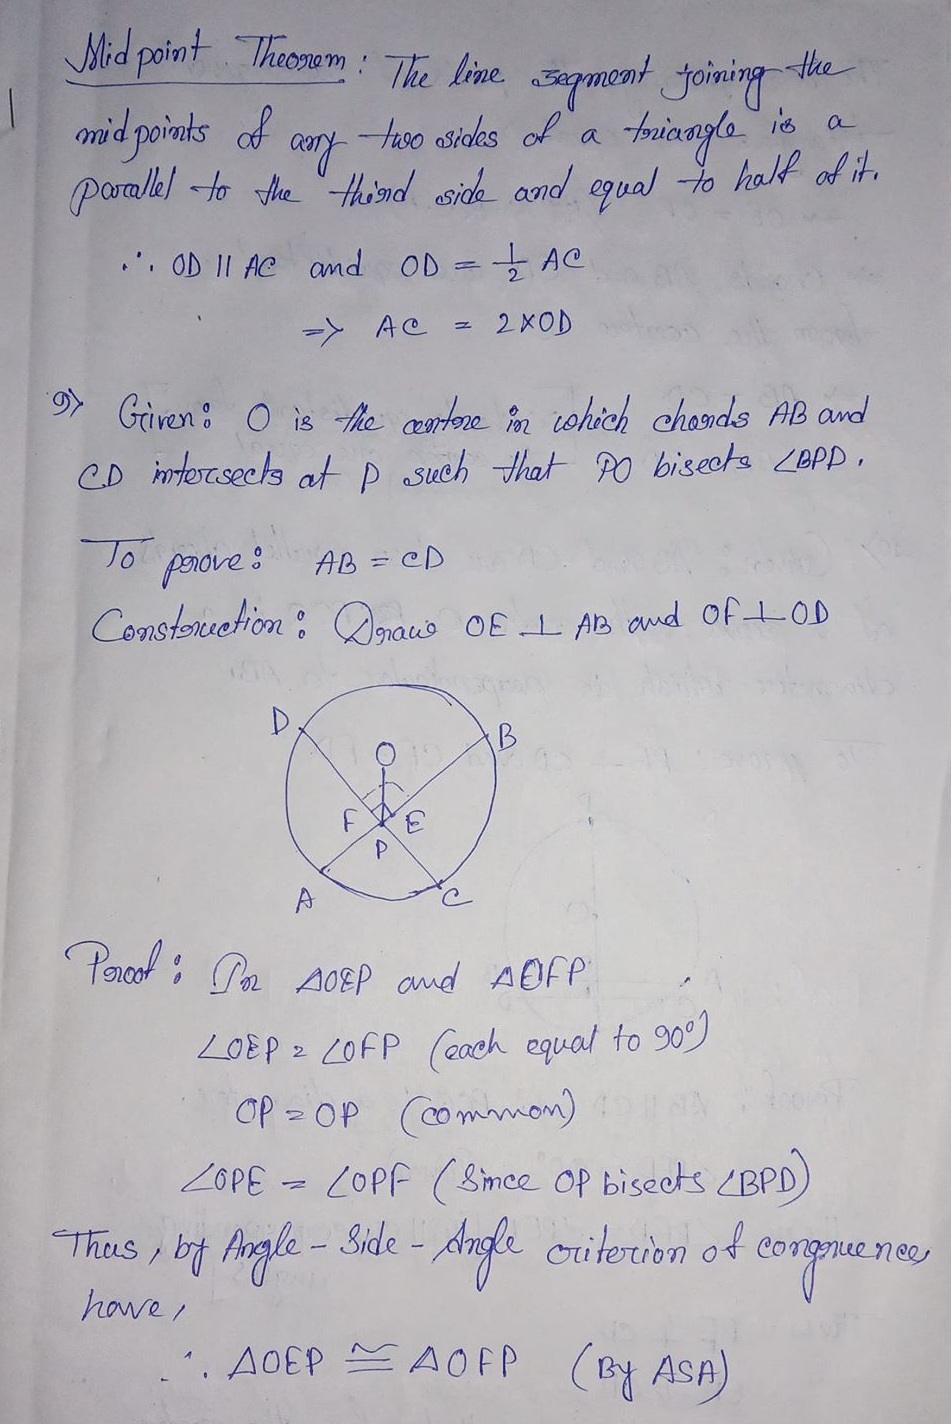 Midpoint Theorem : The line segment joining the
midpoints of any two sides of a triangle is a
parallel to the third side and equal to half of it.
∴ OD || AC and OD = 1/2 AC
=> AC = 2×OD
9> Given : O is the centre in which chords AB and
CD intersects at P such that PO bisects ∠BPD.
To prove : AB = CD
Construction : Draw OE ⊥ AB and OF ⊥ OD
D
B
O
F E
P
A
C
Proof : In ΔOEP and ΔOFP
∠OEP = ∠OFP (each equal to 90°)
OP = OP (common)
∠OPE = ∠OPF (Since OP bisects ∠BPD)
Thus, by Angle - Side - Angle criterion of congruence,
have,
∴ ΔOEP ≅ ΔOFP (By ASA)